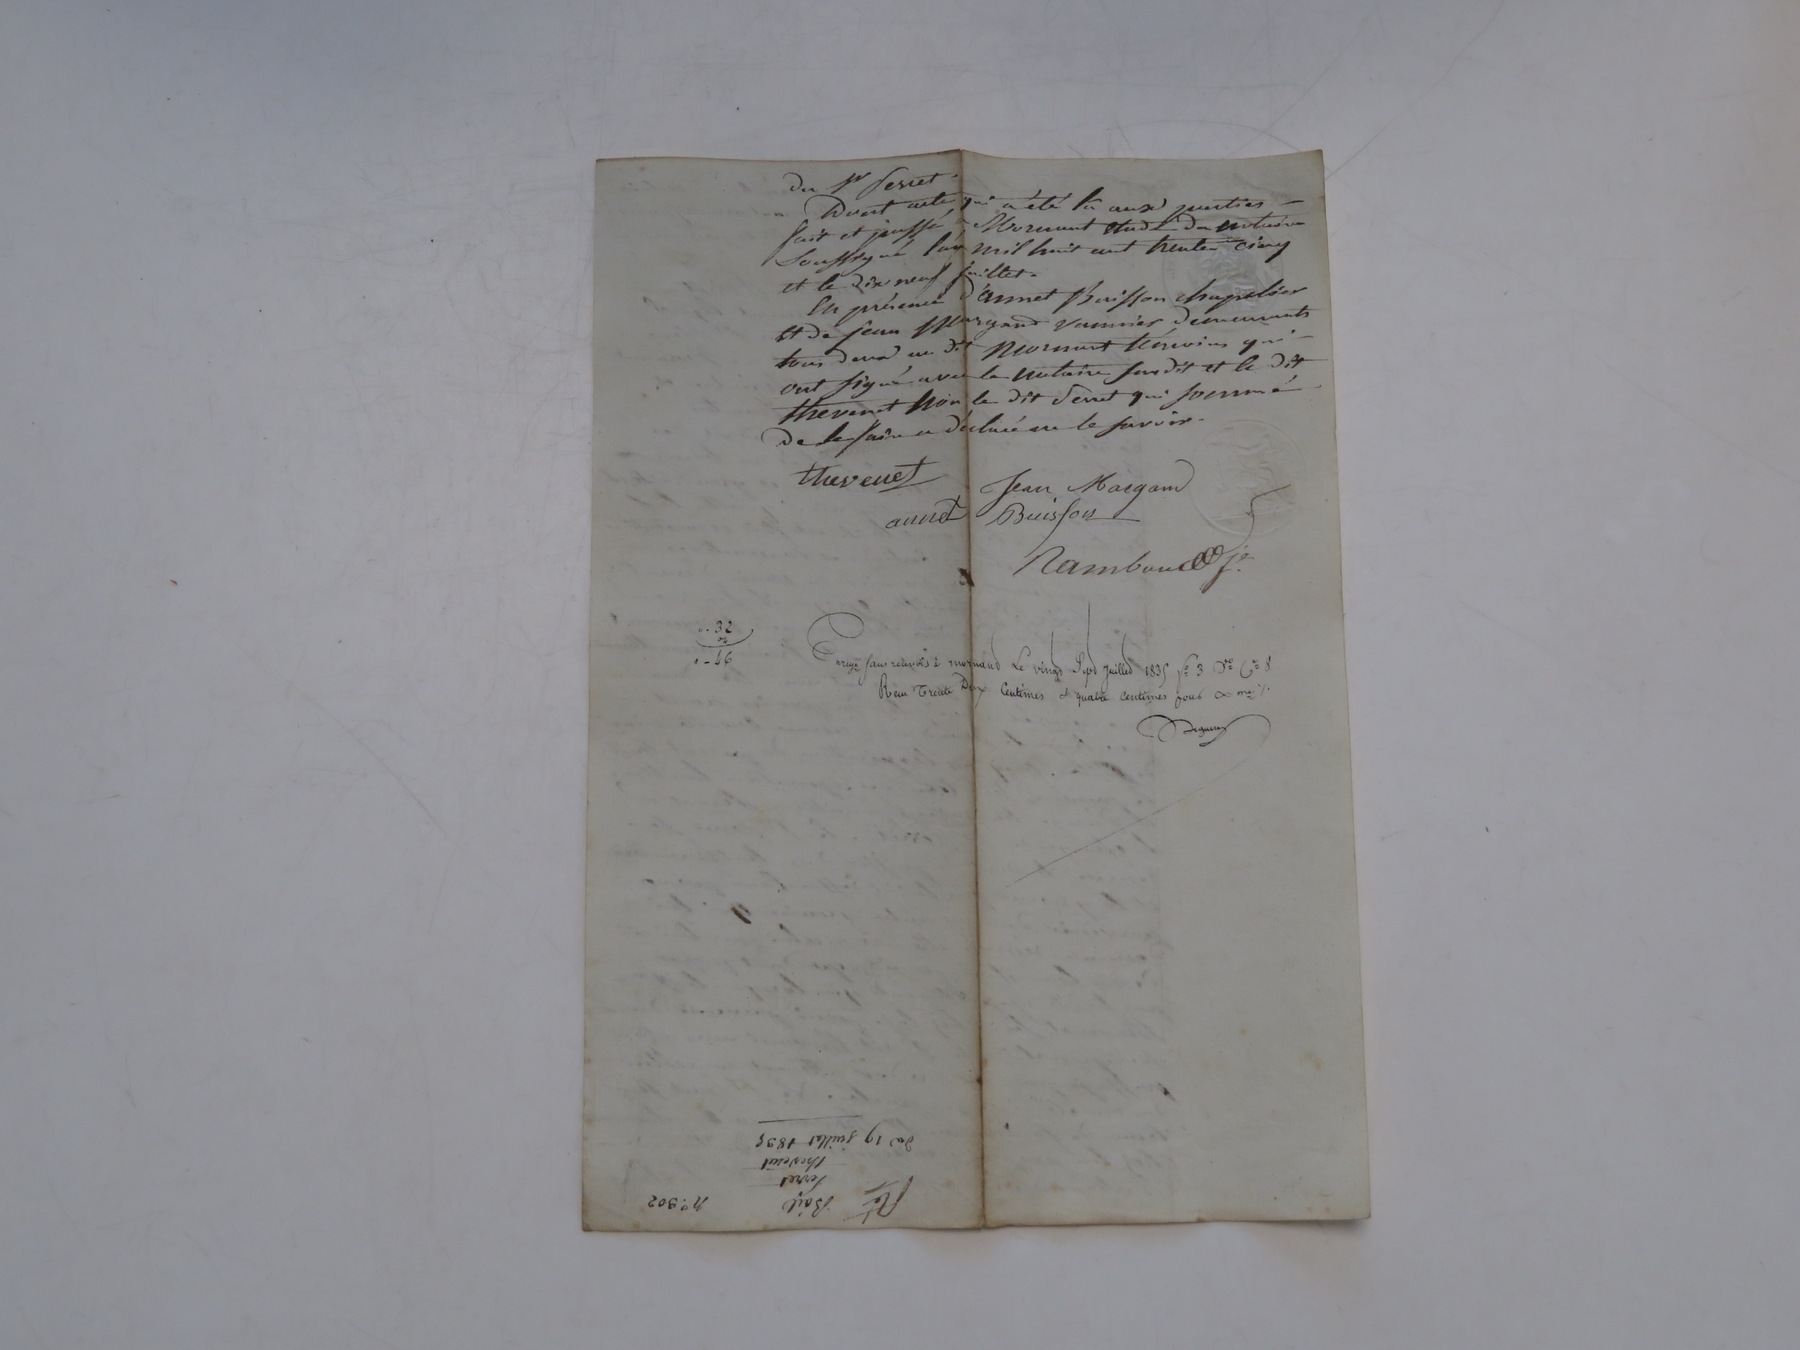 du Sr Serret.
Dont acte, qui a été lu aux parties
fait et passé à Mornant étude du notaire
soussigné l'an mil huit cent trente cinq
et le dix neuf juillet.
En présence d'annet Buisson chapelier
et de Jean Margand vannier demeurants
tous deux au dit Mornant témoins qui
ont signé avec le notaire susdit et le dit
thevenet Non le dit Serret qui sommé
de le faire a déclaré ne le savoir.
thevenet Jean Margand
annet Buisson
32
Enregé sans renvoi à mornand Le vingt Sept juillet 1835 fo 3 Vo Ce 8
Reçu Trente Deux Centimes et quatre centimes pour
du 19 juillet 1835
thevenet
Serret
Bail
no. 302